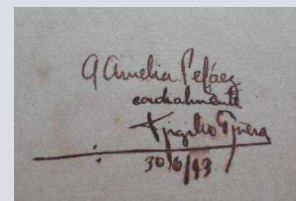 A Amelia Peláez
cordialmente
Virgilio Piñera
30/6/43